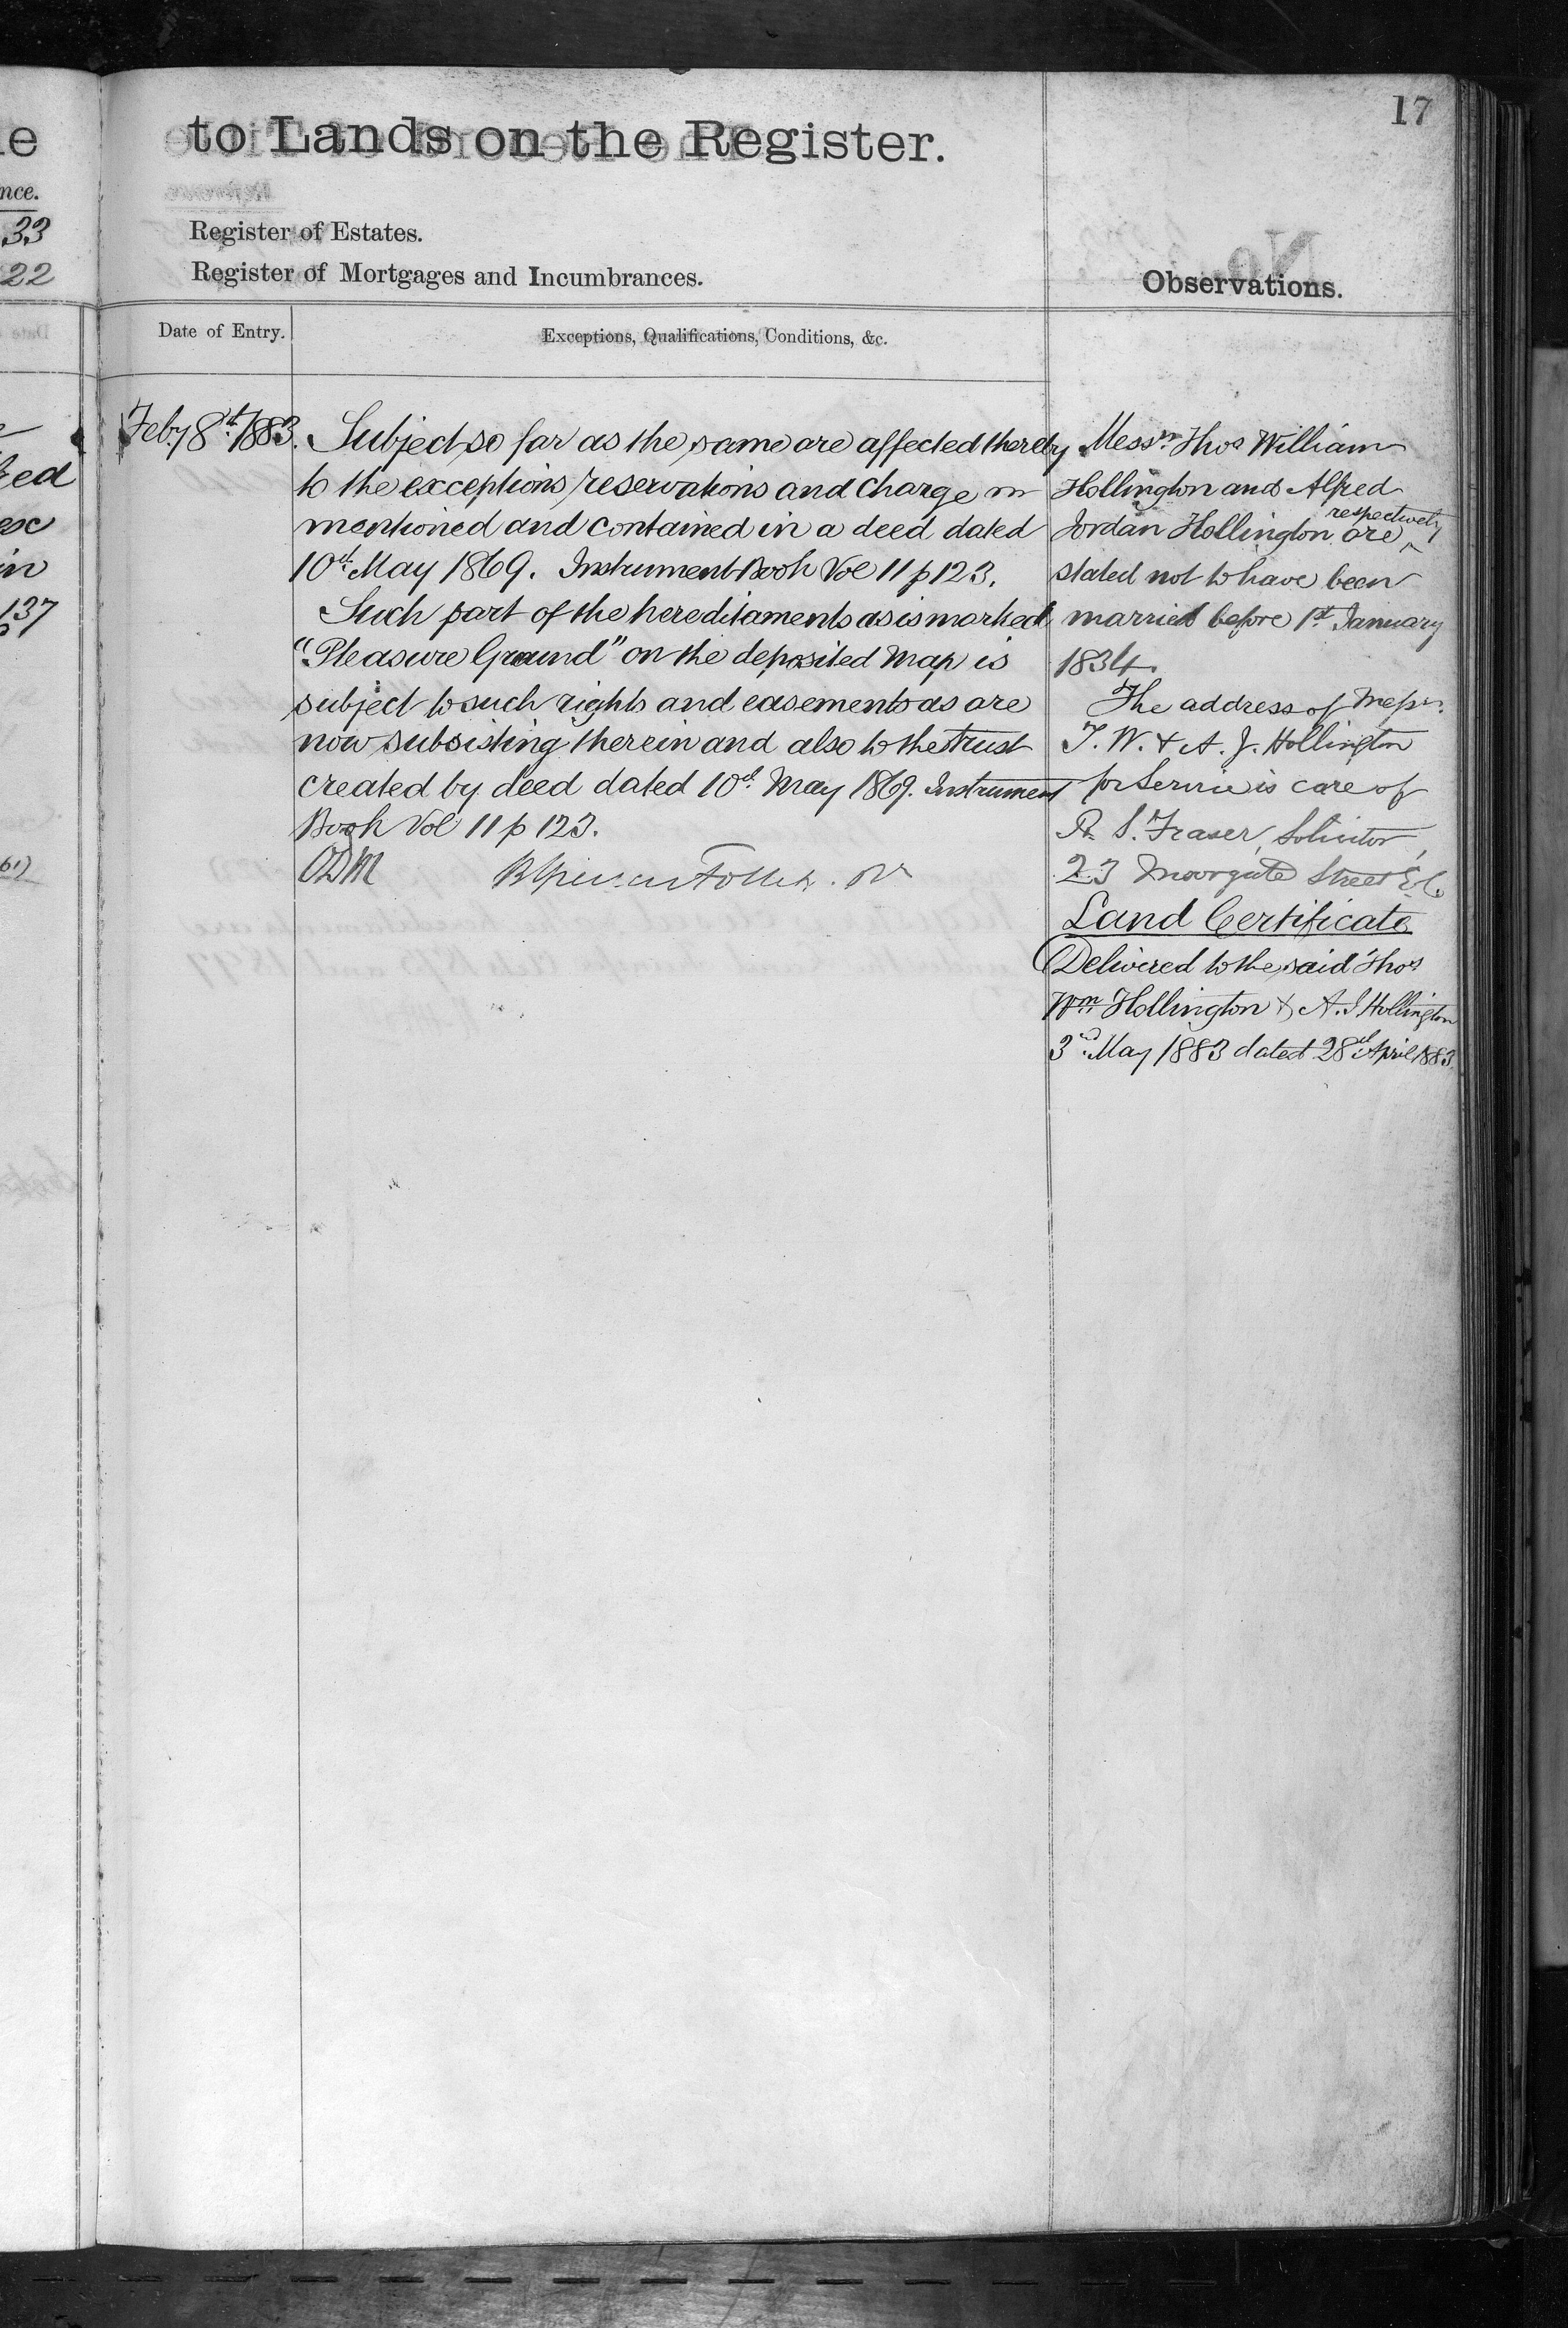 17
to Lands on the Register.
Register of Estates.
Register of Mortgages and Incumbrances.
Observations.
Date of Entry.
Exceptions, Qualifications, Conditions, &c.
Feby 8th 1883.
Subject so far as the same are affected thereby
to the exceptions reservations and charge in
mentioned and contained in a deed dated
10th May 1869. Instrument Book Vol 11 p 123.
Such part of the hereditaments as is marked
"Pleasure Ground" on the deposited Map is
subject to such rights and easements as are
now subsisting therein and also to the trust
created by deed dated 10th May 1869. Instrument
Book Vol 11 p 123.
Messrs Thos William
Hollington and Alfred
Jordan Hollington are respectively
stated not to have been
married before 1st January
1834.
The address of Messrs.
T. W. & A. J. Hollington
for Service is care of
R. S. Fraser, Solicitor,
23 Moorgate Street E.C.
Land Certificate
Delivered to the said Thos
Wm Hollington & A. J Hollington
3rd May 1883 dated 28th April 1883.
e
nce.
33
22
ed
in
137
61)